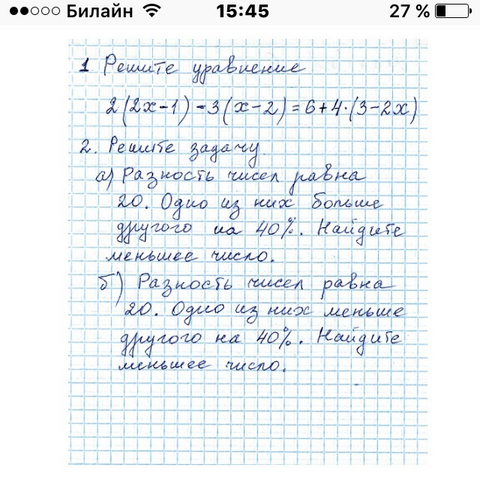 Билайн 15:45 27 %
1 Решите уравнение
2(2x-1)-3(x-2)=6+4·(3-2x)
2. Решите задачу
а) Разность чисел равна
20. Одно из них больше
другого на 40%. Найдите
меньшее число.
б) Разность чисел равна
20. Одно из них меньше
другого на 40%. Найдите
меньшее число.